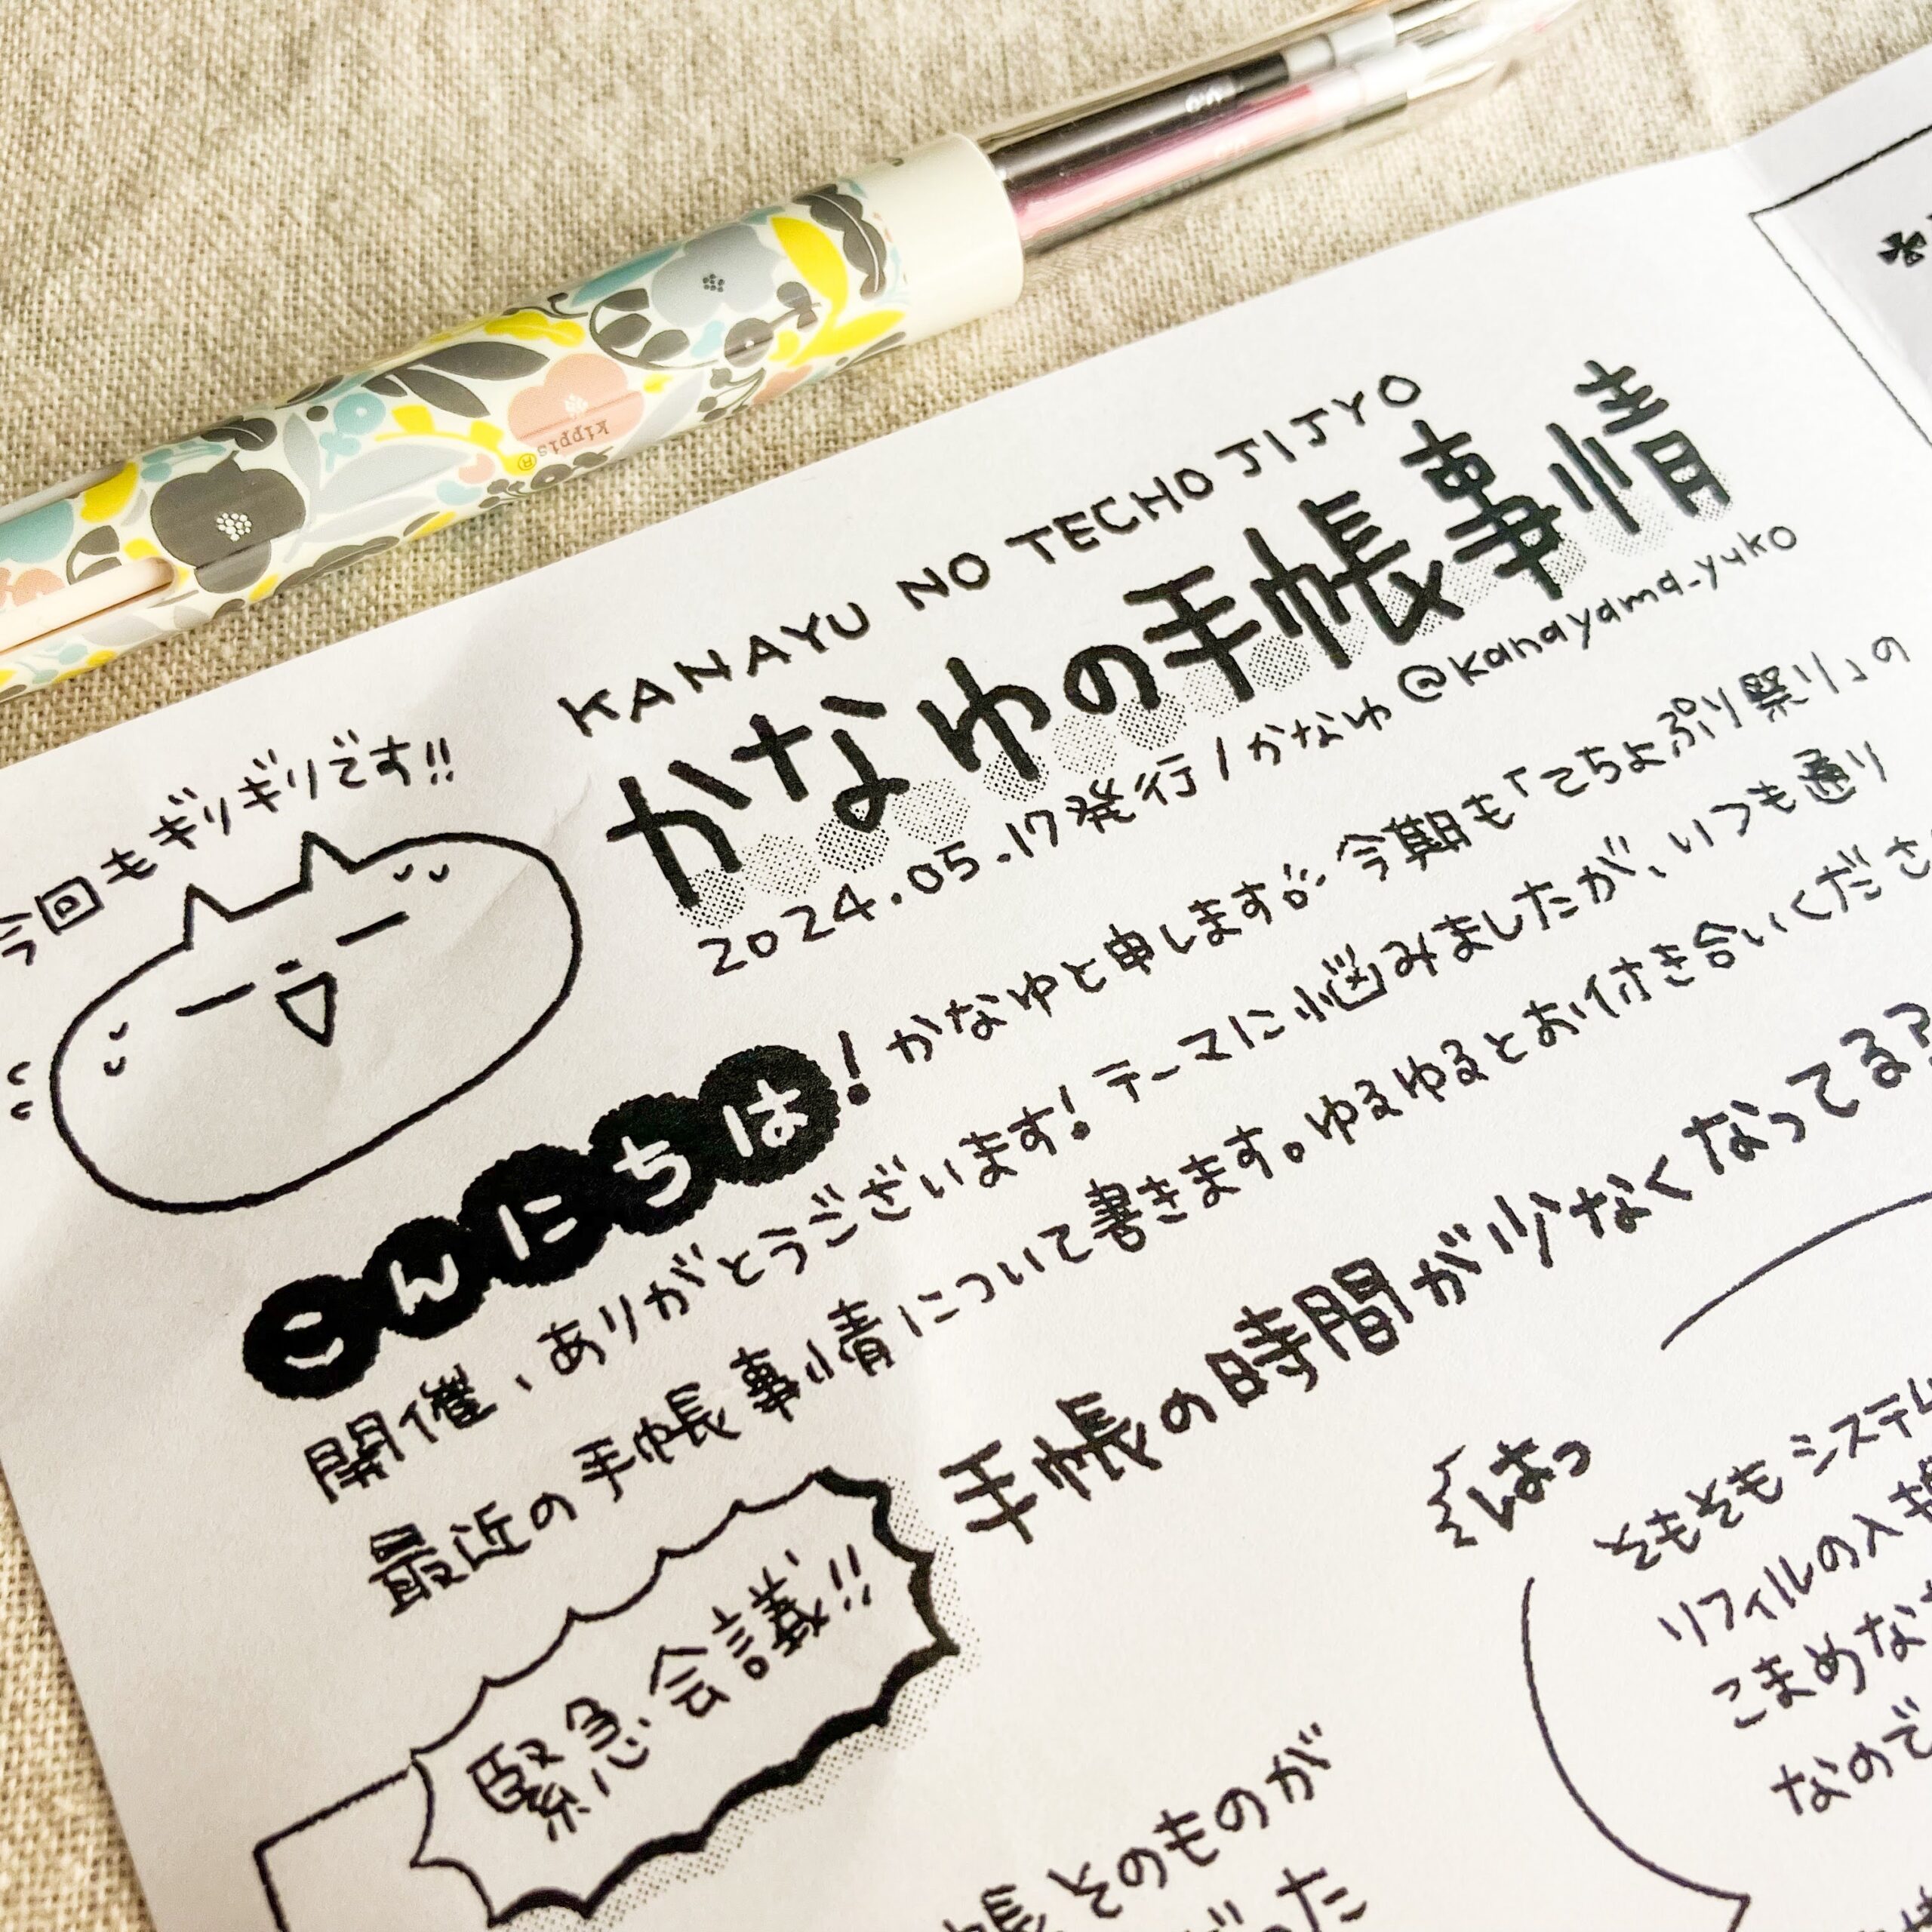 kippis®
KANAYU NO TECHO JIJYO
かなゆの手帳事情
2024.05.17発行/かなゆ@kanayama_yuko
今回もギリギリです!!
こんにちは!かなゆと申します 今期も「てちょぷり祭り」の
開催、ありがとうございます!テーマに悩みましたが、いつも通り
最近の手帳事情について書きます。ゆるゆるとお付き合いくださ
緊急会議!!
手帳の時間が少なくなってる?
はっ
そもそもシステム
リフィルの入
こまめな
なので
帳そのものが
だった